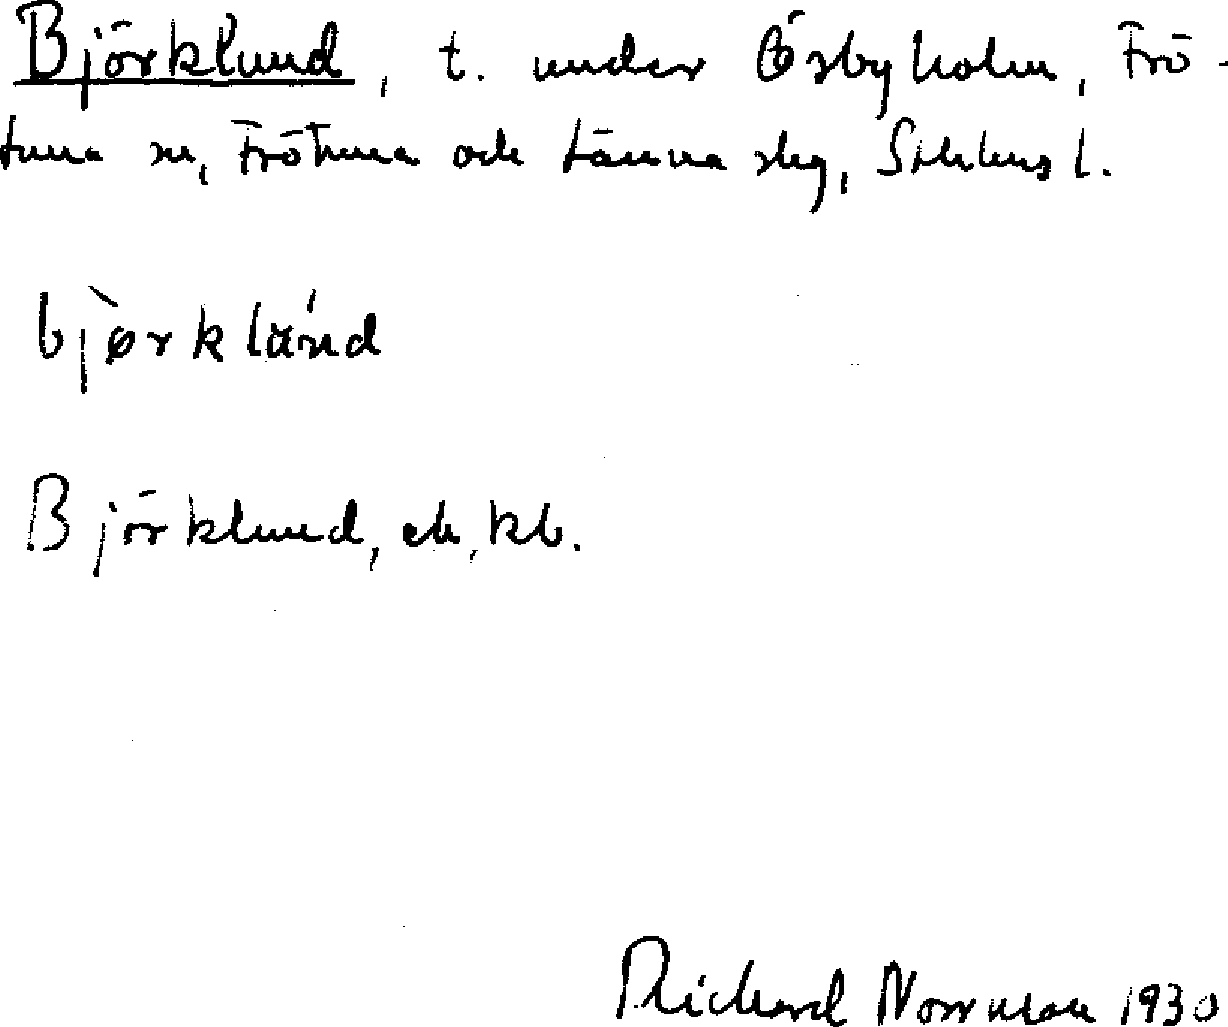 Björklund, t. under Ösbyholm, Frö-
tuna sn, Frötuna och Länna skg, Sthlms l.
bjòrklánd
Björklund, ek, kb.
Richard Norrman 1930